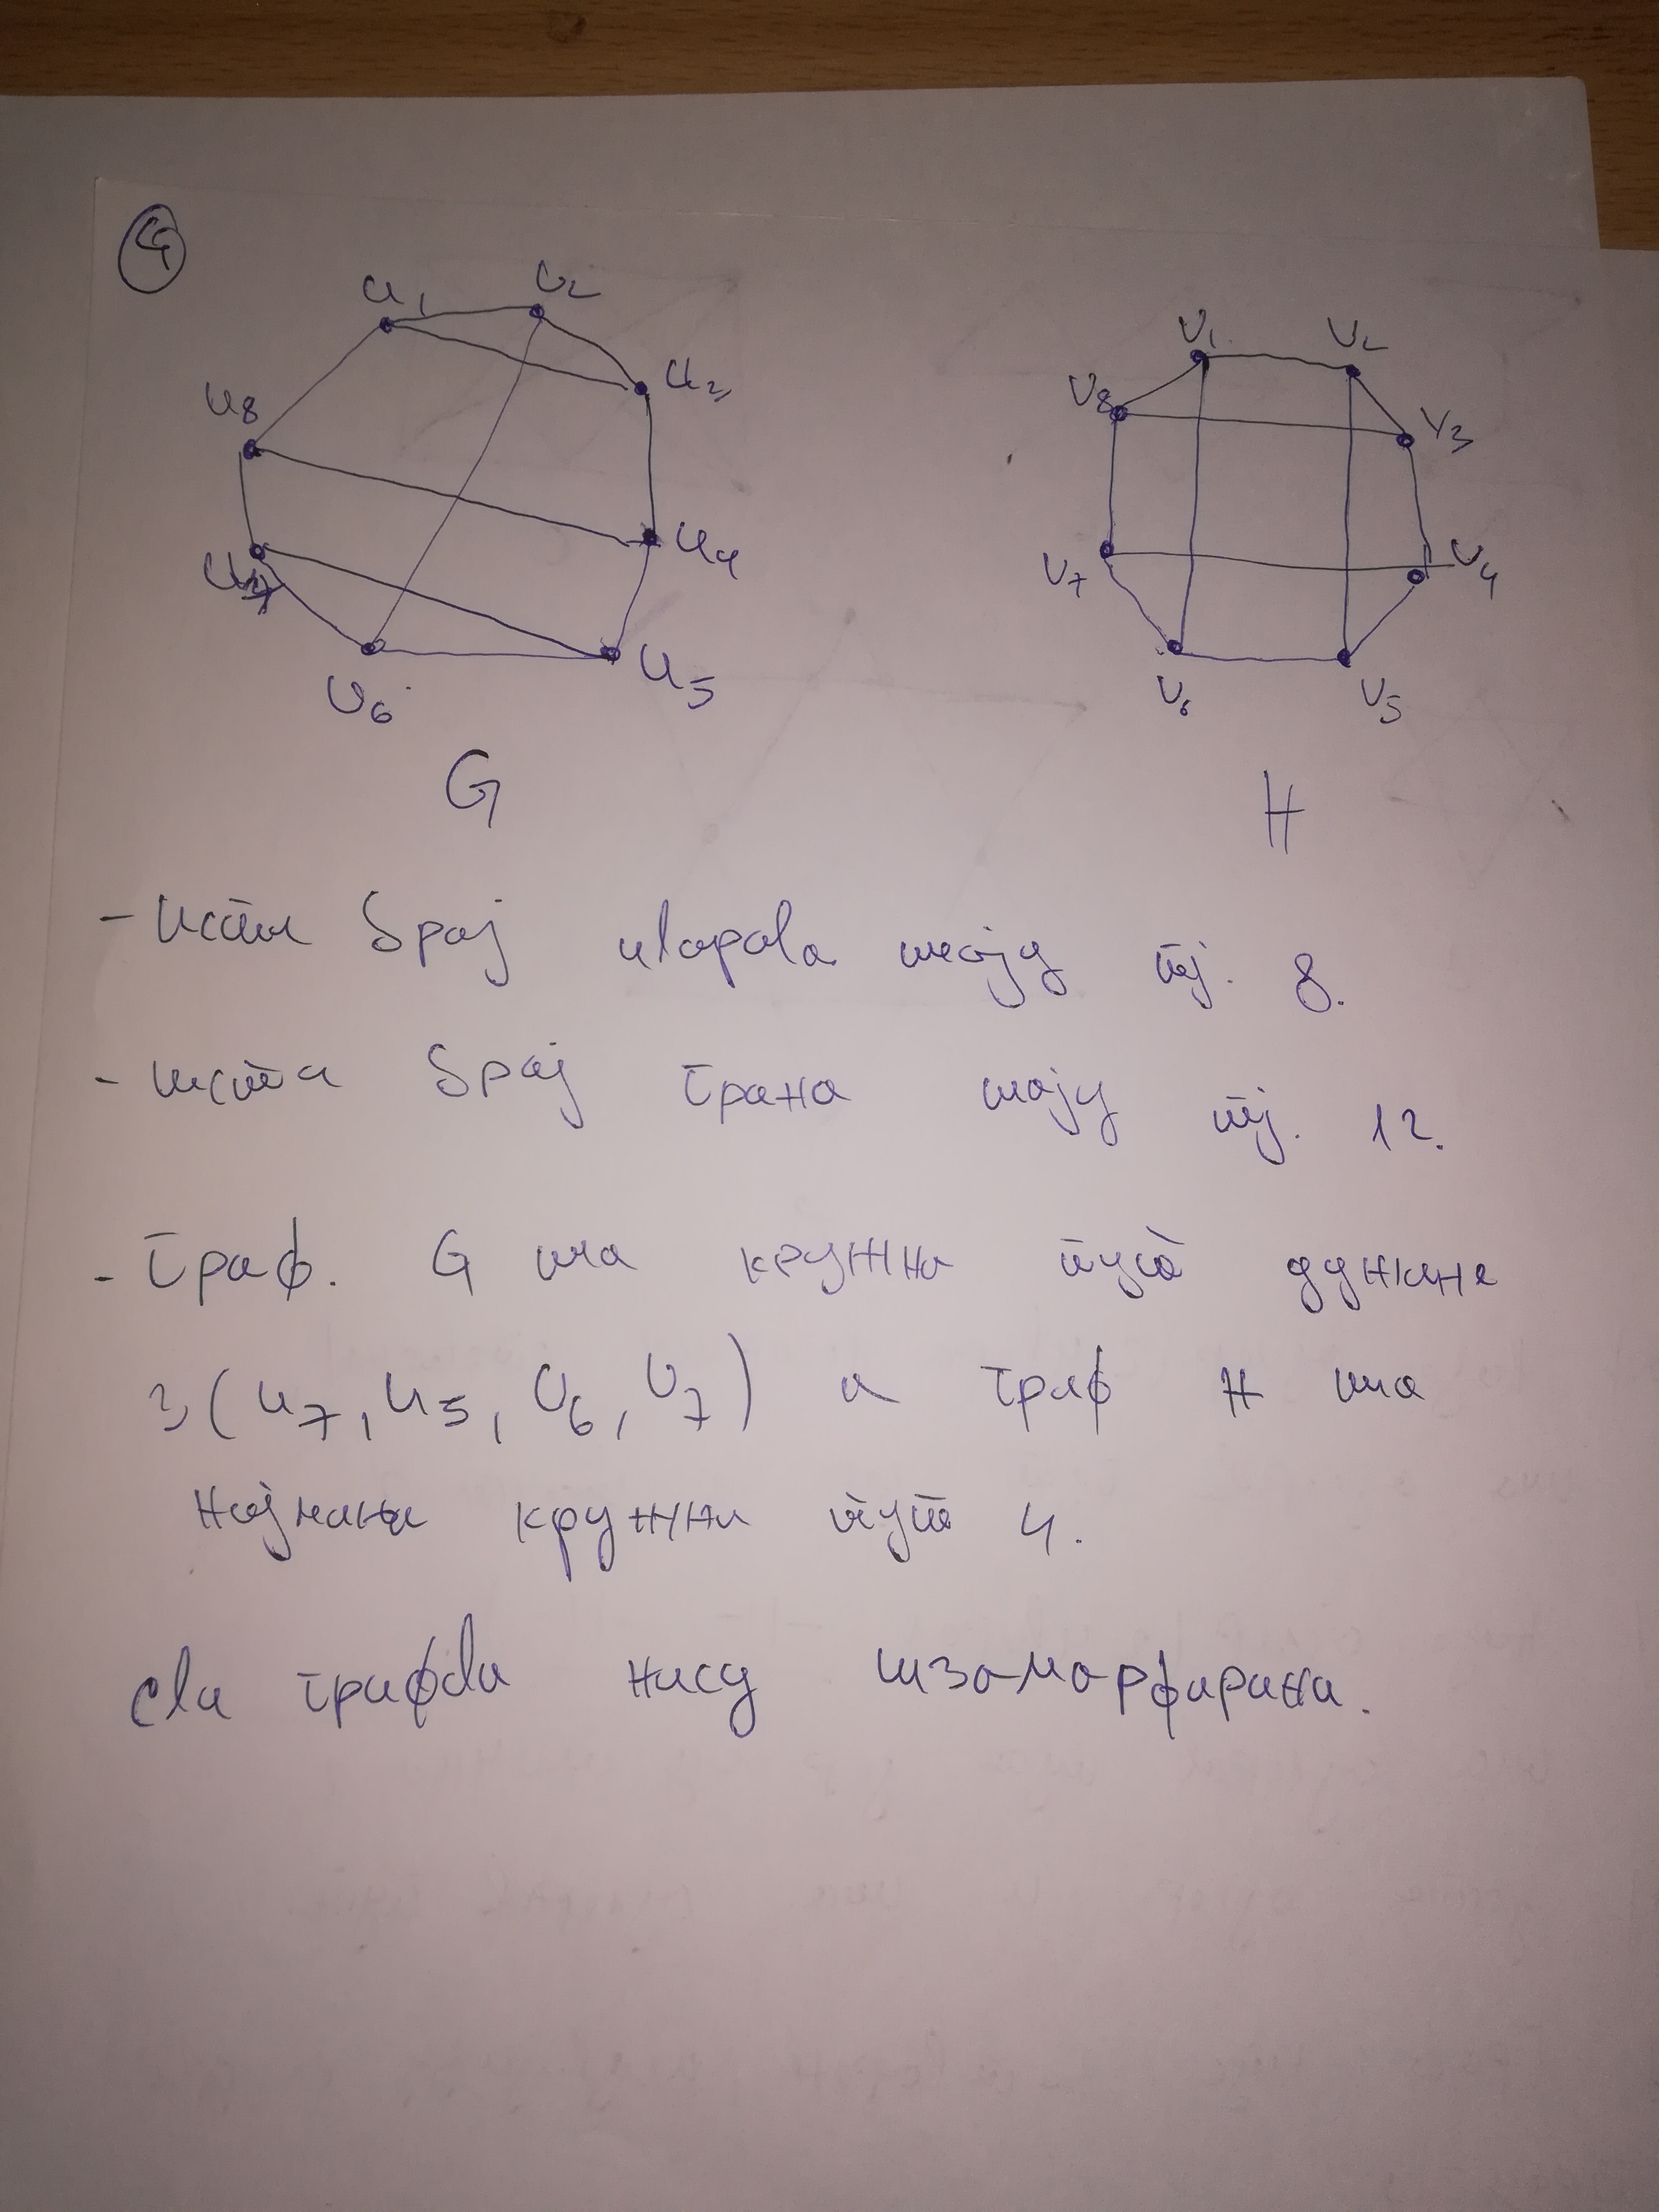 4
u1 u2
u3
u8
u4
u7
u5
u6
G
v1 v2
v8 v3
v7 v4
v6 v5
H
- Исти број чворова имају тј. 8.
- Исти број грана имају тј. 12.
- Граф. G има кружни пут дужине
3 (u7, u5, u6, u7) а граф H има
најмањи кружни пут 4.
ови графови нису изоморфирани.